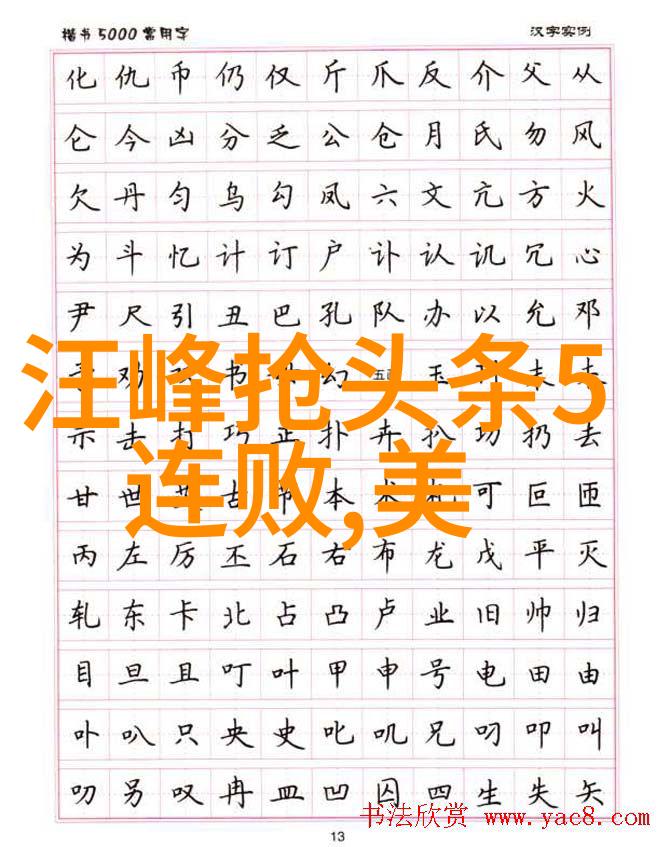 楷书5000常用字 汉字实例
化 仇 币 仍 仅 斤 爪 反 介 父 从
仑 今 凶 分 乏 公 仓 月 氏 勿 风
欠 丹 匀 乌 勾 凤 六 文 亢 方 火
为 斗 忆 计 订 户 讣 认 讥 冗 心
尹 尺 引 丑 巴 孔 队 办 以 允 邓
劝 双 书 幻 五画 玉 刊 末 未
汪峰抢头条5
示 击 打 巧 正 扑 卉 扒 功 扔 去
甘 世 古 节 本 术 札 可 叵 匝
连败,美
丙 左 厉 丕 石 右 布 龙 戊 平 灭
轧 东 卡 北 占 凸 卢 业 旧 帅 归
目 旦 且 叮 叶 甲 申 号 电 田 由
卟 叭 只 央 史 叱 叽 兄 叼 叩 叫
叻 另 叹 冉 皿 凹 囚 四 生 失 矢
书法欣赏 www.yac8.com
13